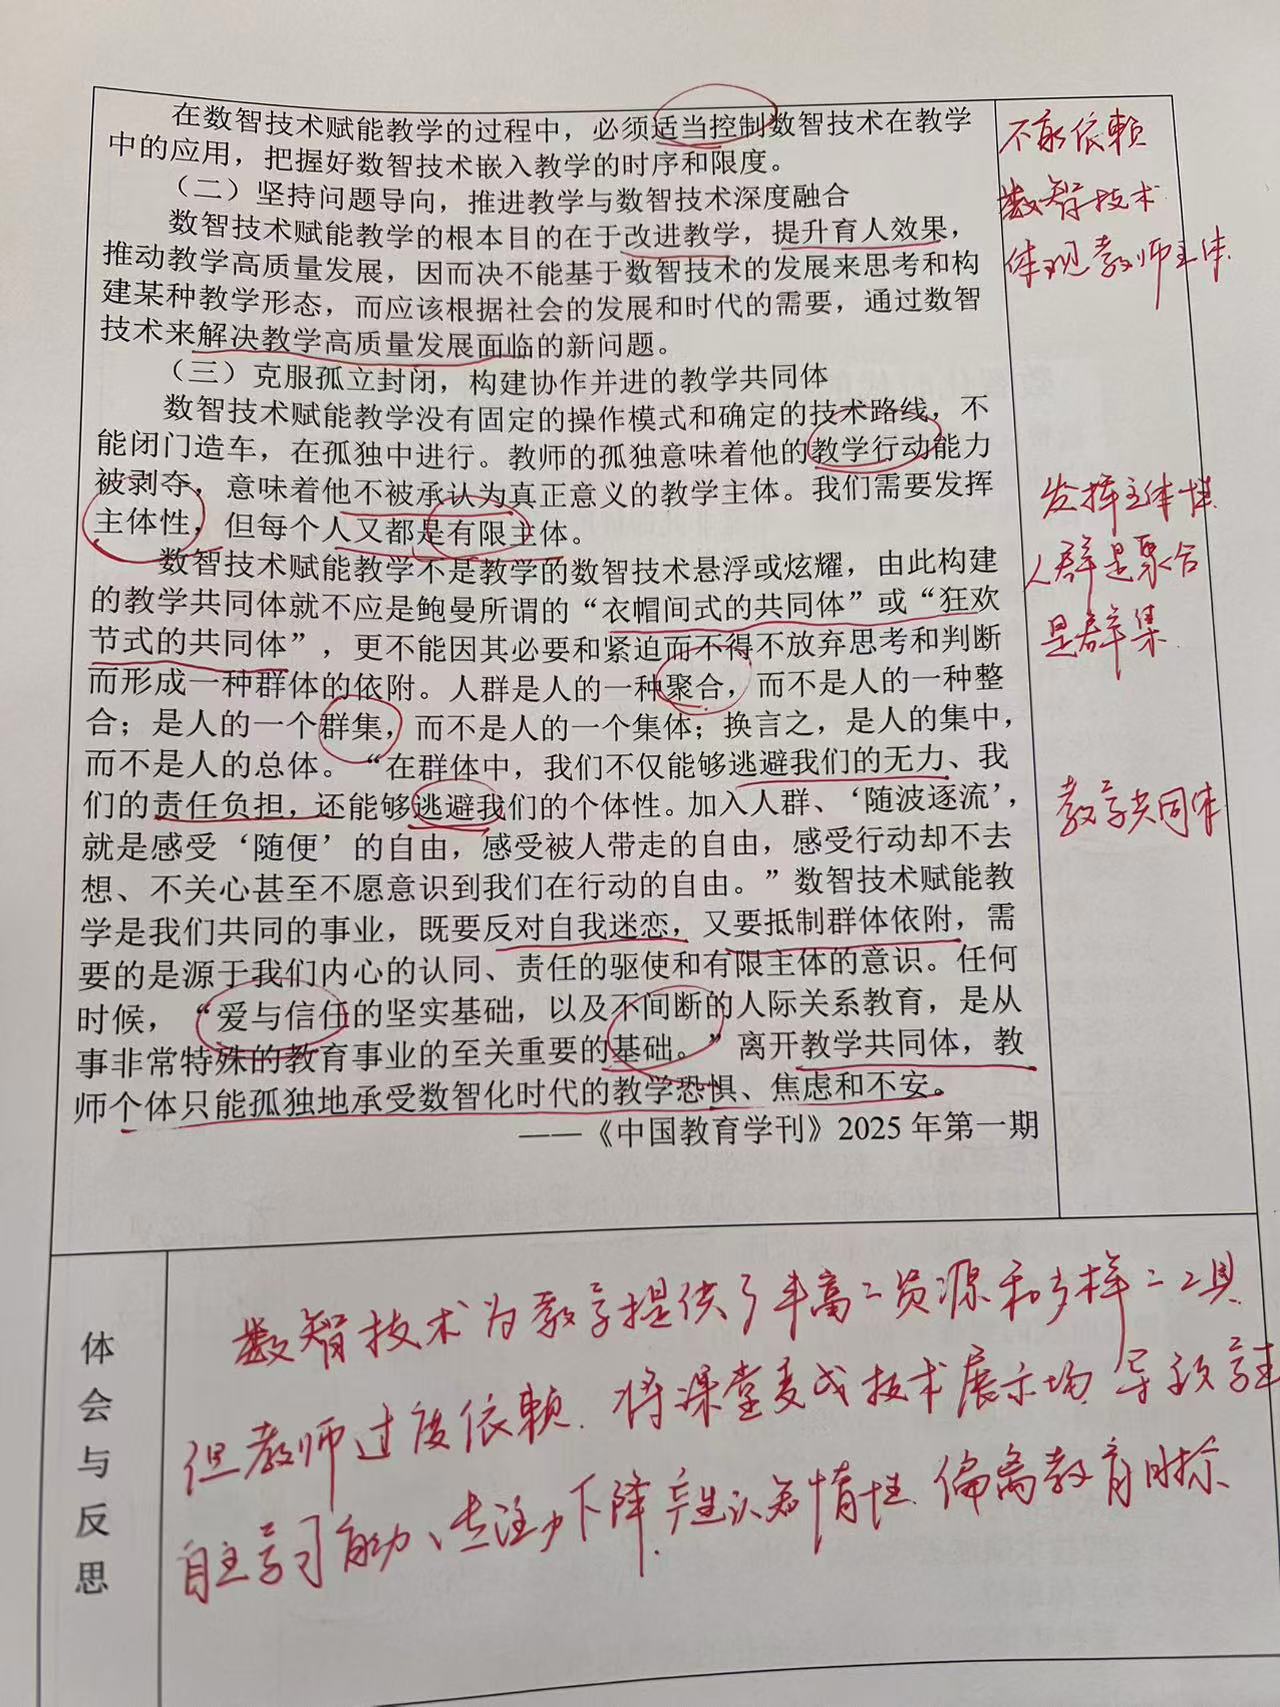 在数智技术赋能教学的过程中，必须适当控制数智技术在教学
中的应用，把握好数智技术嵌入教学的时序和限度。
（二）坚持问题导向，推进教学与数智技术深度融合
数智技术赋能教学的根本目的在于改进教学，提升育人效果，
推动教学高质量发展，因而决不能基于数智技术的发展来思考和构
建某种教学形态，而应该根据社会的发展和时代的需要，通过数智
技术来解决教学高质量发展面临的新问题。
（三）克服孤立封闭，构建协作并进的教学共同体
数智技术赋能教学没有固定的操作模式和确定的技术路线，不
能闭门造车，在孤独中进行。教师的孤独意味着他的教学行动能力
被剥夺，意味着他不被承认为真正意义的教学主体。我们需要发挥
主体性，但每个人又都是有限主体。
数智技术赋能教学不是教学的数智技术悬浮或炫耀，由此构建
的教学共同体就不应是鲍曼所谓的“衣帽间式的共同体”或“狂欢
节式的共同体”，更不能因其必要和紧迫而不得不放弃思考和判断
而形成一种群体的依附。人群是人的一种聚合，而不是人的一种整
合；是人的一个群集，而不是人的一个集体；换言之，是人的集中，
而不是人的总体。“在群体中，我们不仅能够逃避我们的无力、我
们的责任负担，还能够逃避我们的个体性。加入人群、‘随波逐流’，
就是感受‘随便’的自由，感受被人带走的自由，感受行动却不去
想、不关心甚至不愿意识到我们在行动的自由。”数智技术赋能教
学是我们共同的事业，既要反对自我迷恋，又要抵制群体依附，需
要的是源于我们内心的认同、责任的驱使和有限主体的意识。任何
时候，“爱与信任的坚实基础，以及不间断的人际关系教育，是从
事非常特殊的教育事业的至关重要的基础。”离开教学共同体，教
师个体只能孤独地承受数智化时代的教学恐惧、焦虑和不安。
——《中国教育学刊》2025年第一期
不依赖
数智技术
体现教师主体
发挥主体性
人群是聚合
是群集
教学共同体
体会与反思
数智技术为教学提供了丰富资源和多样工具
但教师过度依赖、将课堂变成技术展示场 导致学生
自主学习能力、专注力下降、产生认知惰性、偏离教育目标